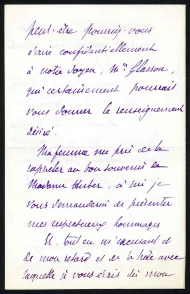 peut-être pourriez-vous
écrire confidentiellement
à notre doyen, Mr Glasson,
qui certainement pourrait
vous donner le renseignement
désiré.
Ma femme me prie de la
rappeler au bon souvenir de
Madame Huber, à qui je
vous demanderai de présenter
mes respectueux hommages
Et, tout en m'excusant et
de mon retard et de la hâte avec
laquelle je vous écris